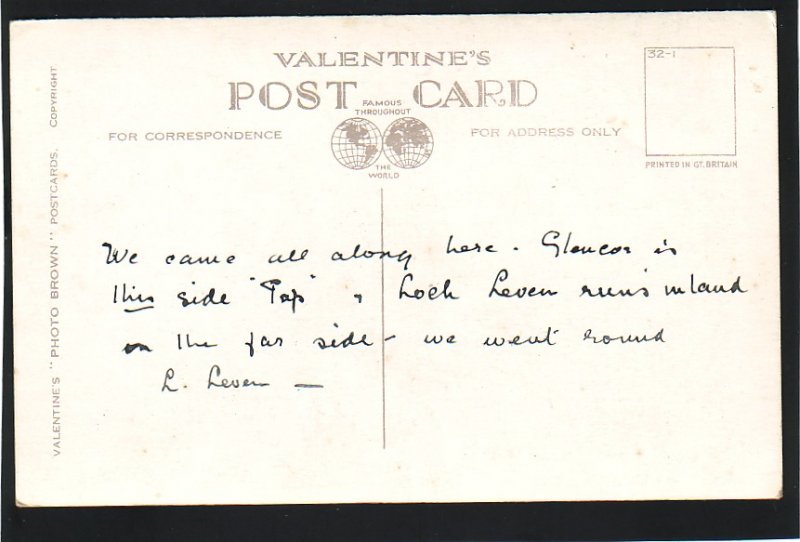 VALENTINE'S
POST CARD
FAMOUS
THROUGHOUT
THE
WORLD
FOR CORRESPONDENCE
FOR ADDRESS ONLY
32-1
PRINTED IN GT. BRITAIN
VALENTINE'S "PHOTO BROWN" POSTCARDS. COPYRIGHT
We came all along here. Glencoe is
this side "Pap" & Loch Leven runs inland
on the far side - we went round
L. Leven —